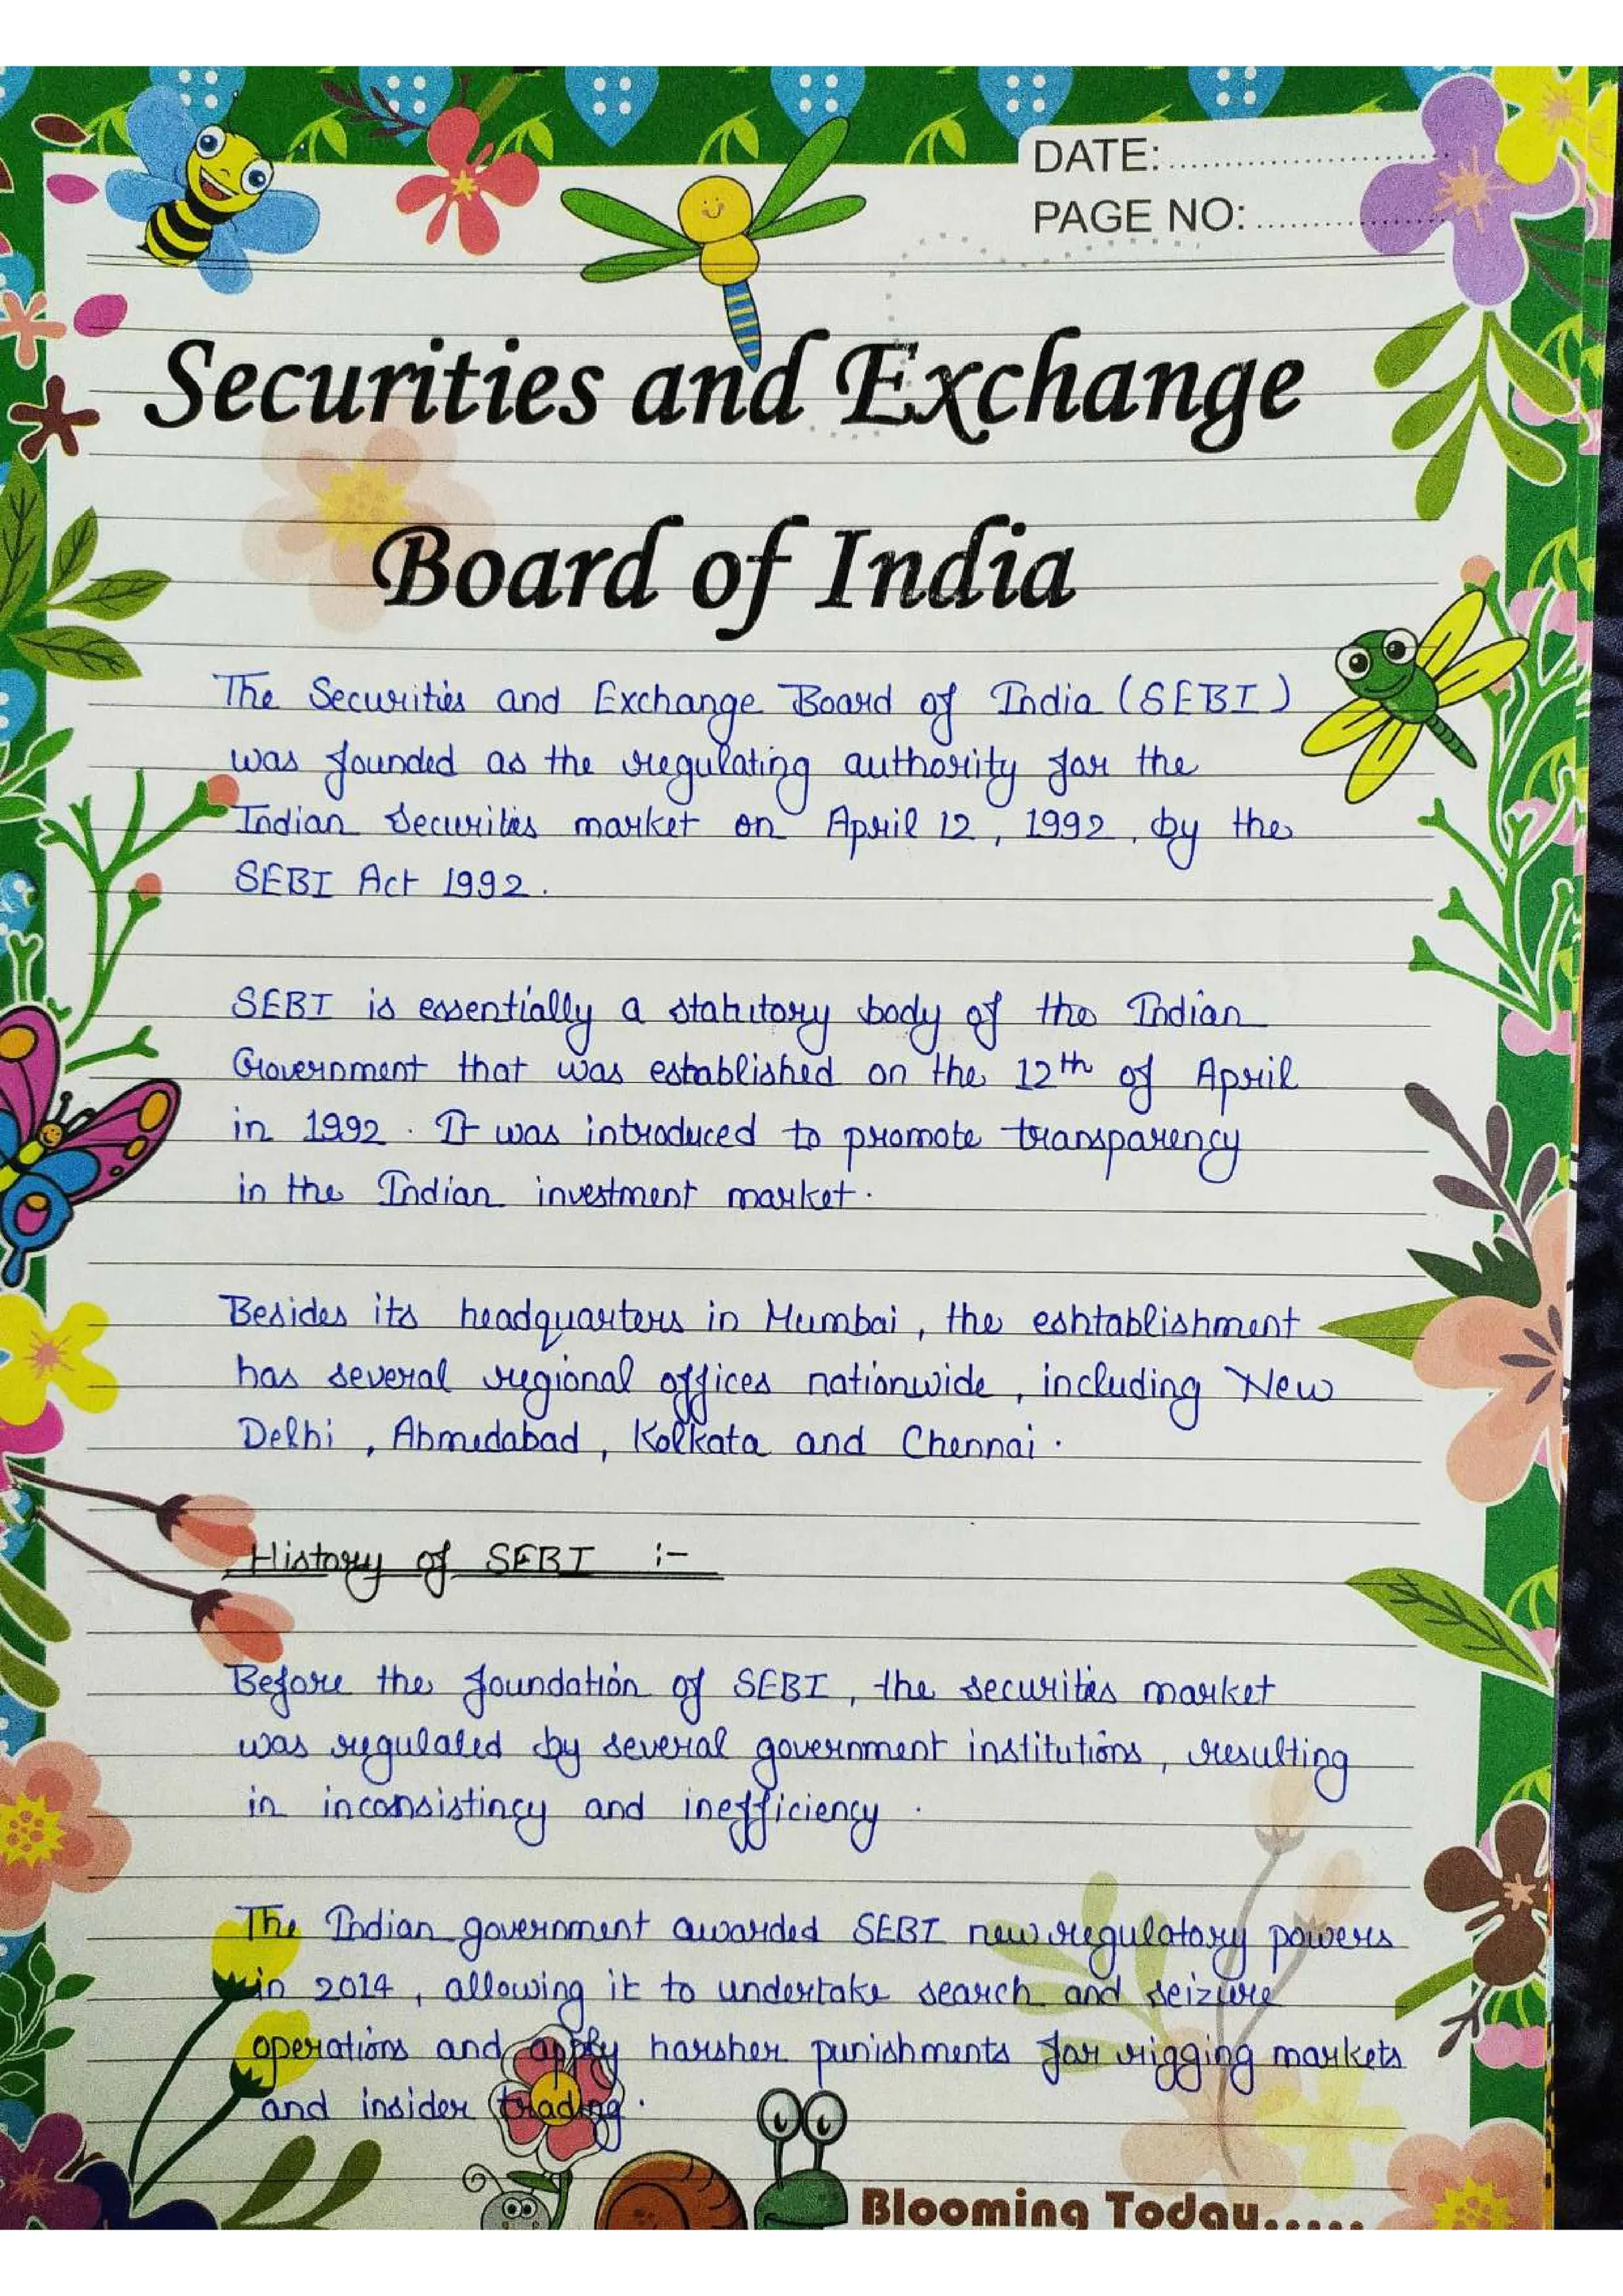 DATE:........................
PAGE NO:................
Securities and Exchange
Board of India
The Securities and Exchange Board of India (SEBI)
was founded as the regulating authority for the
Indian Securities market on April 12, 1992, by the
SEBI Act 1992.
SEBI is essentially a statutory body of the Indian
Government that was established on the 12th of April
in 1992. It was introduced to promote transparency
in the Indian investment market.
Besides its headquarters in Mumbai, the eshtablishment
has several regional offices nationwide, including New
Delhi, Ahmedabad, Kolkata and Chennai.
History of SEBI :-
Before the foundation of SEBI, the securities market
was regulated by several government institutions, resulting
in inconsistincy and inefficiency.
The Indian government awarded SEBI new regulatory powers
in 2014, allowing it to undertake search and seizure
operations and apply harsher punishments for rigging markets
and insider trading.
Blooming Today.....